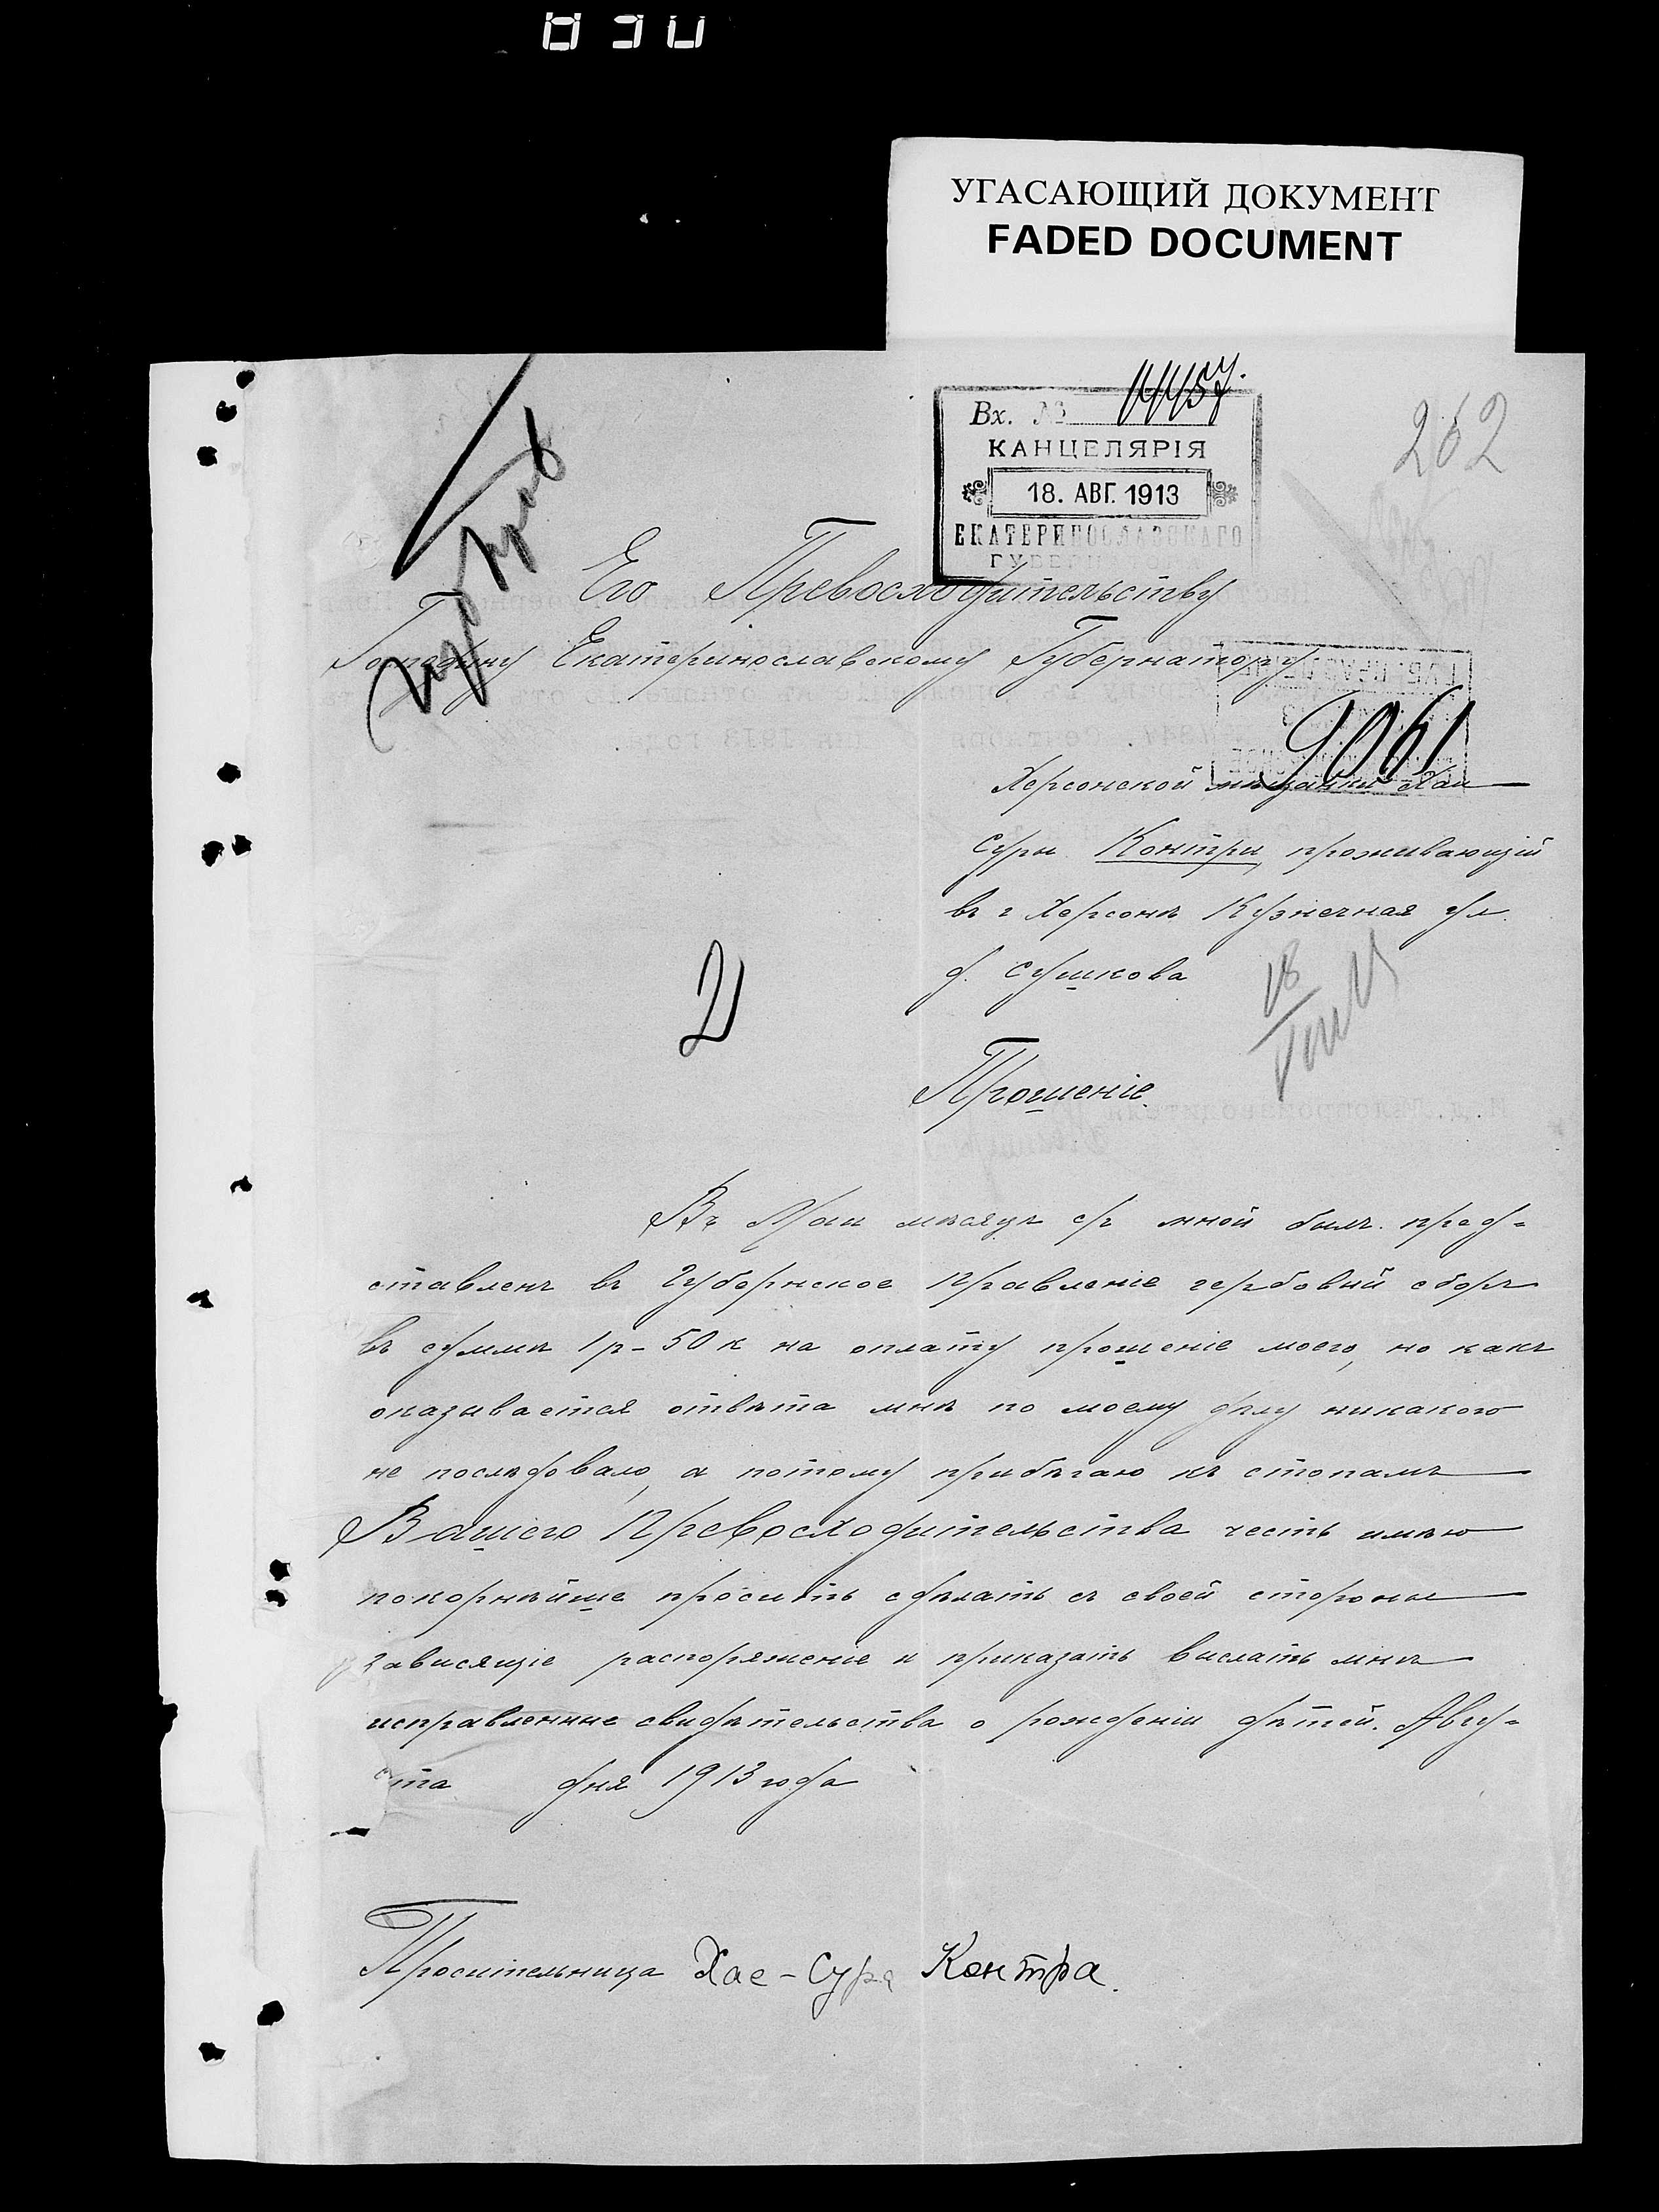 830
УГАСАЮЩИЙ ДОКУМЕНТ
FADED DOCUMENT
Вх. №
КАНЦЕЛЯРІЯ
18. АВГ. 1913
ЕКАТЕРИНОСЛАВСКАГО
262
Его Превосходительству
Господину Екатеринославскому Губернатору
9061
Херсонской мѣщанки Хаи
Суры Контры, проживающій
въ г Херсонѣ Кузнечная ул.
д. Сушкова
18
2
Прошеніе.
Въ Маи мѣсяцѣ с/г мной былъ пред-
ставленъ въ Губернское Правленіе гербовый сборъ
въ суммѣ 1 р - 50 к на оплату прошеніе моего, но какъ
оказывается отвѣта мнѣ по моему дѣлу никакого
не послѣдовало, а потому прибѣгаю къ стопамъ
Вашего Превосходительства честь имѣю
покорнѣйше просить сдѣлать съ своей стороны
зависящіе распоряженіе и приказать выслать мнѣ
исправленные свидѣтельства о рожденіи дѣтей. Авгу-
ста дня 1913 года
Просительница Хае - Сура Контра.